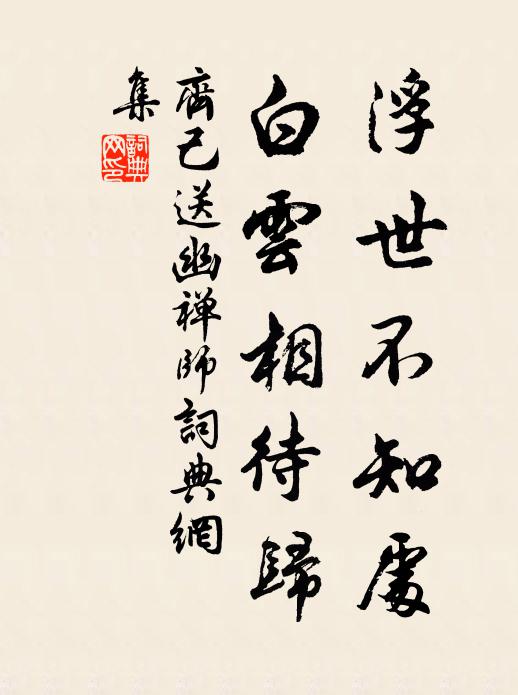 浮世不知處
白雲相待歸
齊己送幽禪師詞典網
集
詞典
网印